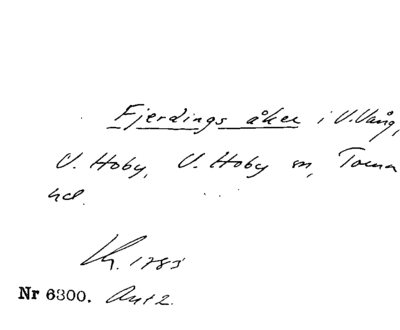 Fjerdings åker i V. Vång,
V. Hoby, V. Hoby sn, Torna
hd.
Kr. 1783
Nr 6300. Ant 2.